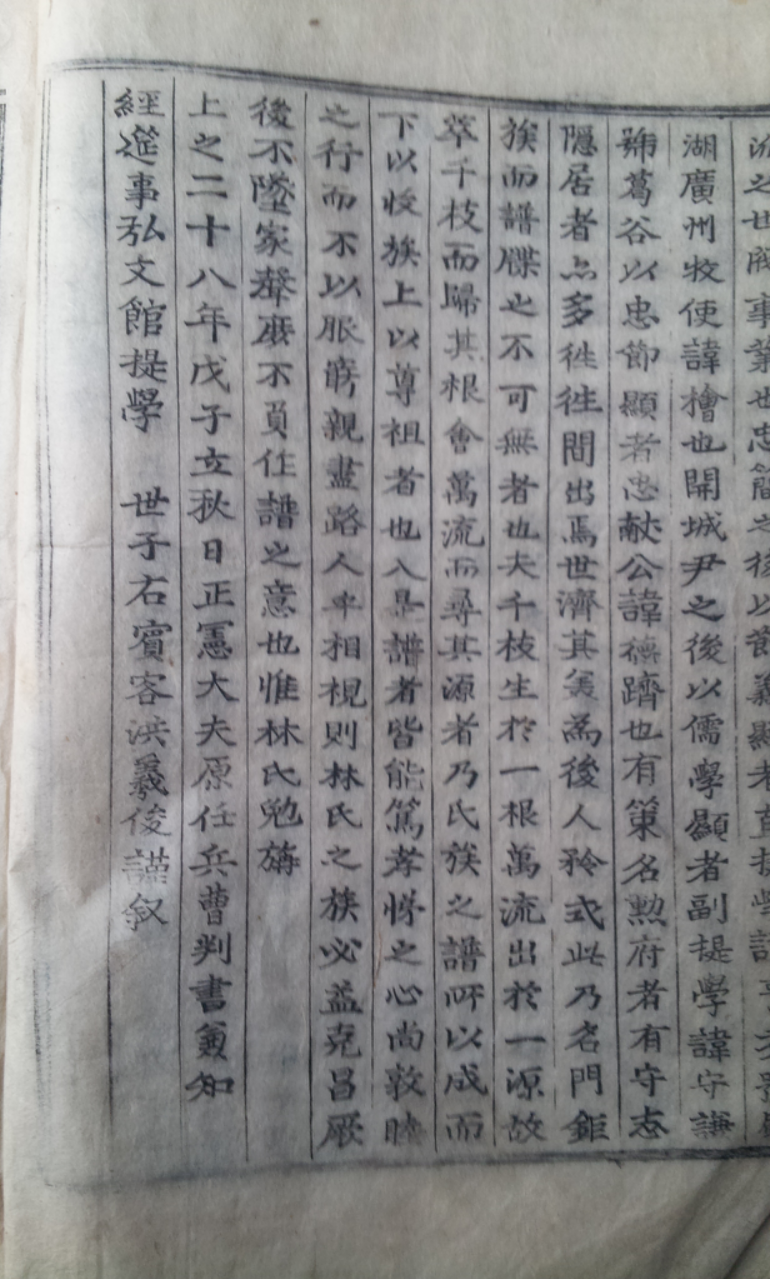 派之世閥事業也忠簡之後以節義顯者直提學諱
湖廣州牧使諱檜也開城尹之後以儒學顯者副提學諱守謙
號葛谷以忠節顯者忠献公諱德躋也有策名勲府者有守志
隱居者亦多徃徃間出焉世濟其美為後人矜式此乃名門鉅
族而譜牒之不可無者也夫千枝生於一根萬流出於一源故
萃千枝而歸其根會萬流而尋其源者乃氏族之譜所以成而
下以收族上以尊祖者也入是譜者皆能篤孝悌之心尚敦睦
之行而不以服窮親盡路人乎相視則林氏之族必益克昌厥
後不墜家聲庶不負作譜之意也惟林氏勉旃
上之二十八年戊子立秋日正憲大夫原任兵曹判書兼知
經筵事弘文館提學 世子右賓客洪羲俊謹叙